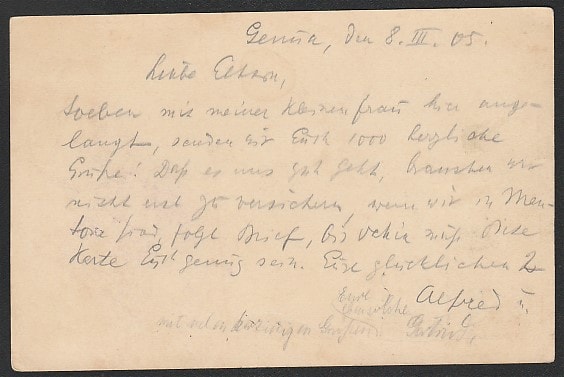 Genua, den 8. III. 05.
Liebe Eltern,
Soeben mit meiner kleinen Frau hier ange-
langt, senden wir Euch 1000 herzliche
Grüße! Daß es uns gut geht, brauchen wir
nicht erst zu versichern, wenn wir in Men-
tone sind, folgt Brief, bis dahin muß diese
Karte Euch genug sein. Eure glücklichen 2
Alfred u.
mit